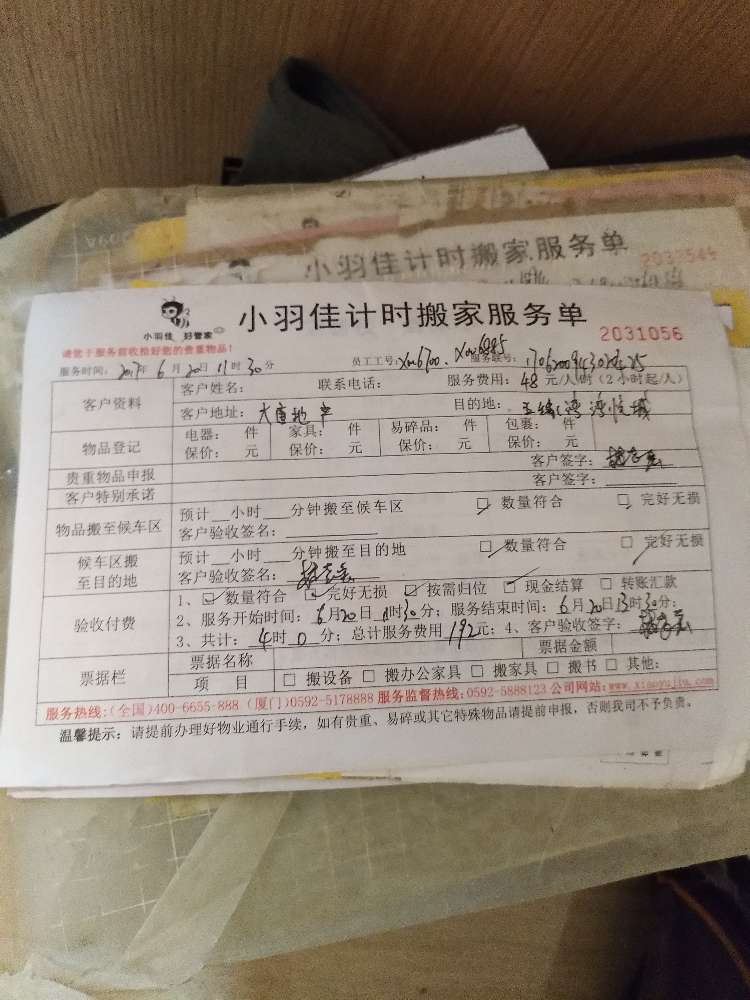 小羽佳计时搬家服务单
2032544
小羽佳 好管家
小羽佳计时搬家服务单
2031056
请您于服务前收拾好您的贵重物品!
服务时间: 2017年 6月 20日 11时 30分 员工工号: Xm6700. 服务联号:
客户资料
客户姓名: 联系电话: 服务费用: 48 元/人/时(2小时起/人)
客户地址: 大唐地产 目的地: 五缘湾
物品登记
电器: 件 家具: 件 易碎品: 件 包裹: 件
保价: 元 保价: 元 保价: 元 保价: 元
贵重物品申报 客户签字:
客户特别承诺 客户签字:
物品搬至候车区
预计__小时__分钟搬至候车区 数量符合 完好无损
客户验收签名:
候车区搬至目的地
预计__小时__分钟搬至目的地 数量符合 完好无损
客户验收签名:
验收付费
1、数量符合 完好无损 按需归位 现金结算 转账汇款
2、服务开始时间: 6月20日11时30分; 服务结束时间: 6月20日13时30分;
3、共计: 4时0分; 总计服务费用192元; 4、客户验收签字:
票据栏
票据名称 票据金额
项 目 搬设备 搬办公家具 搬家具 搬书 其他:
服务热线:(全国)400-6655-888 (厦门)0592-5178888 服务监督热线:0592-5888123 公司网站:www.xiaoyujia.com
温馨提示: 请提前办理好物业通行手续,如有贵重、易碎或其它特殊物品请提前申报,否则我司不予负责。